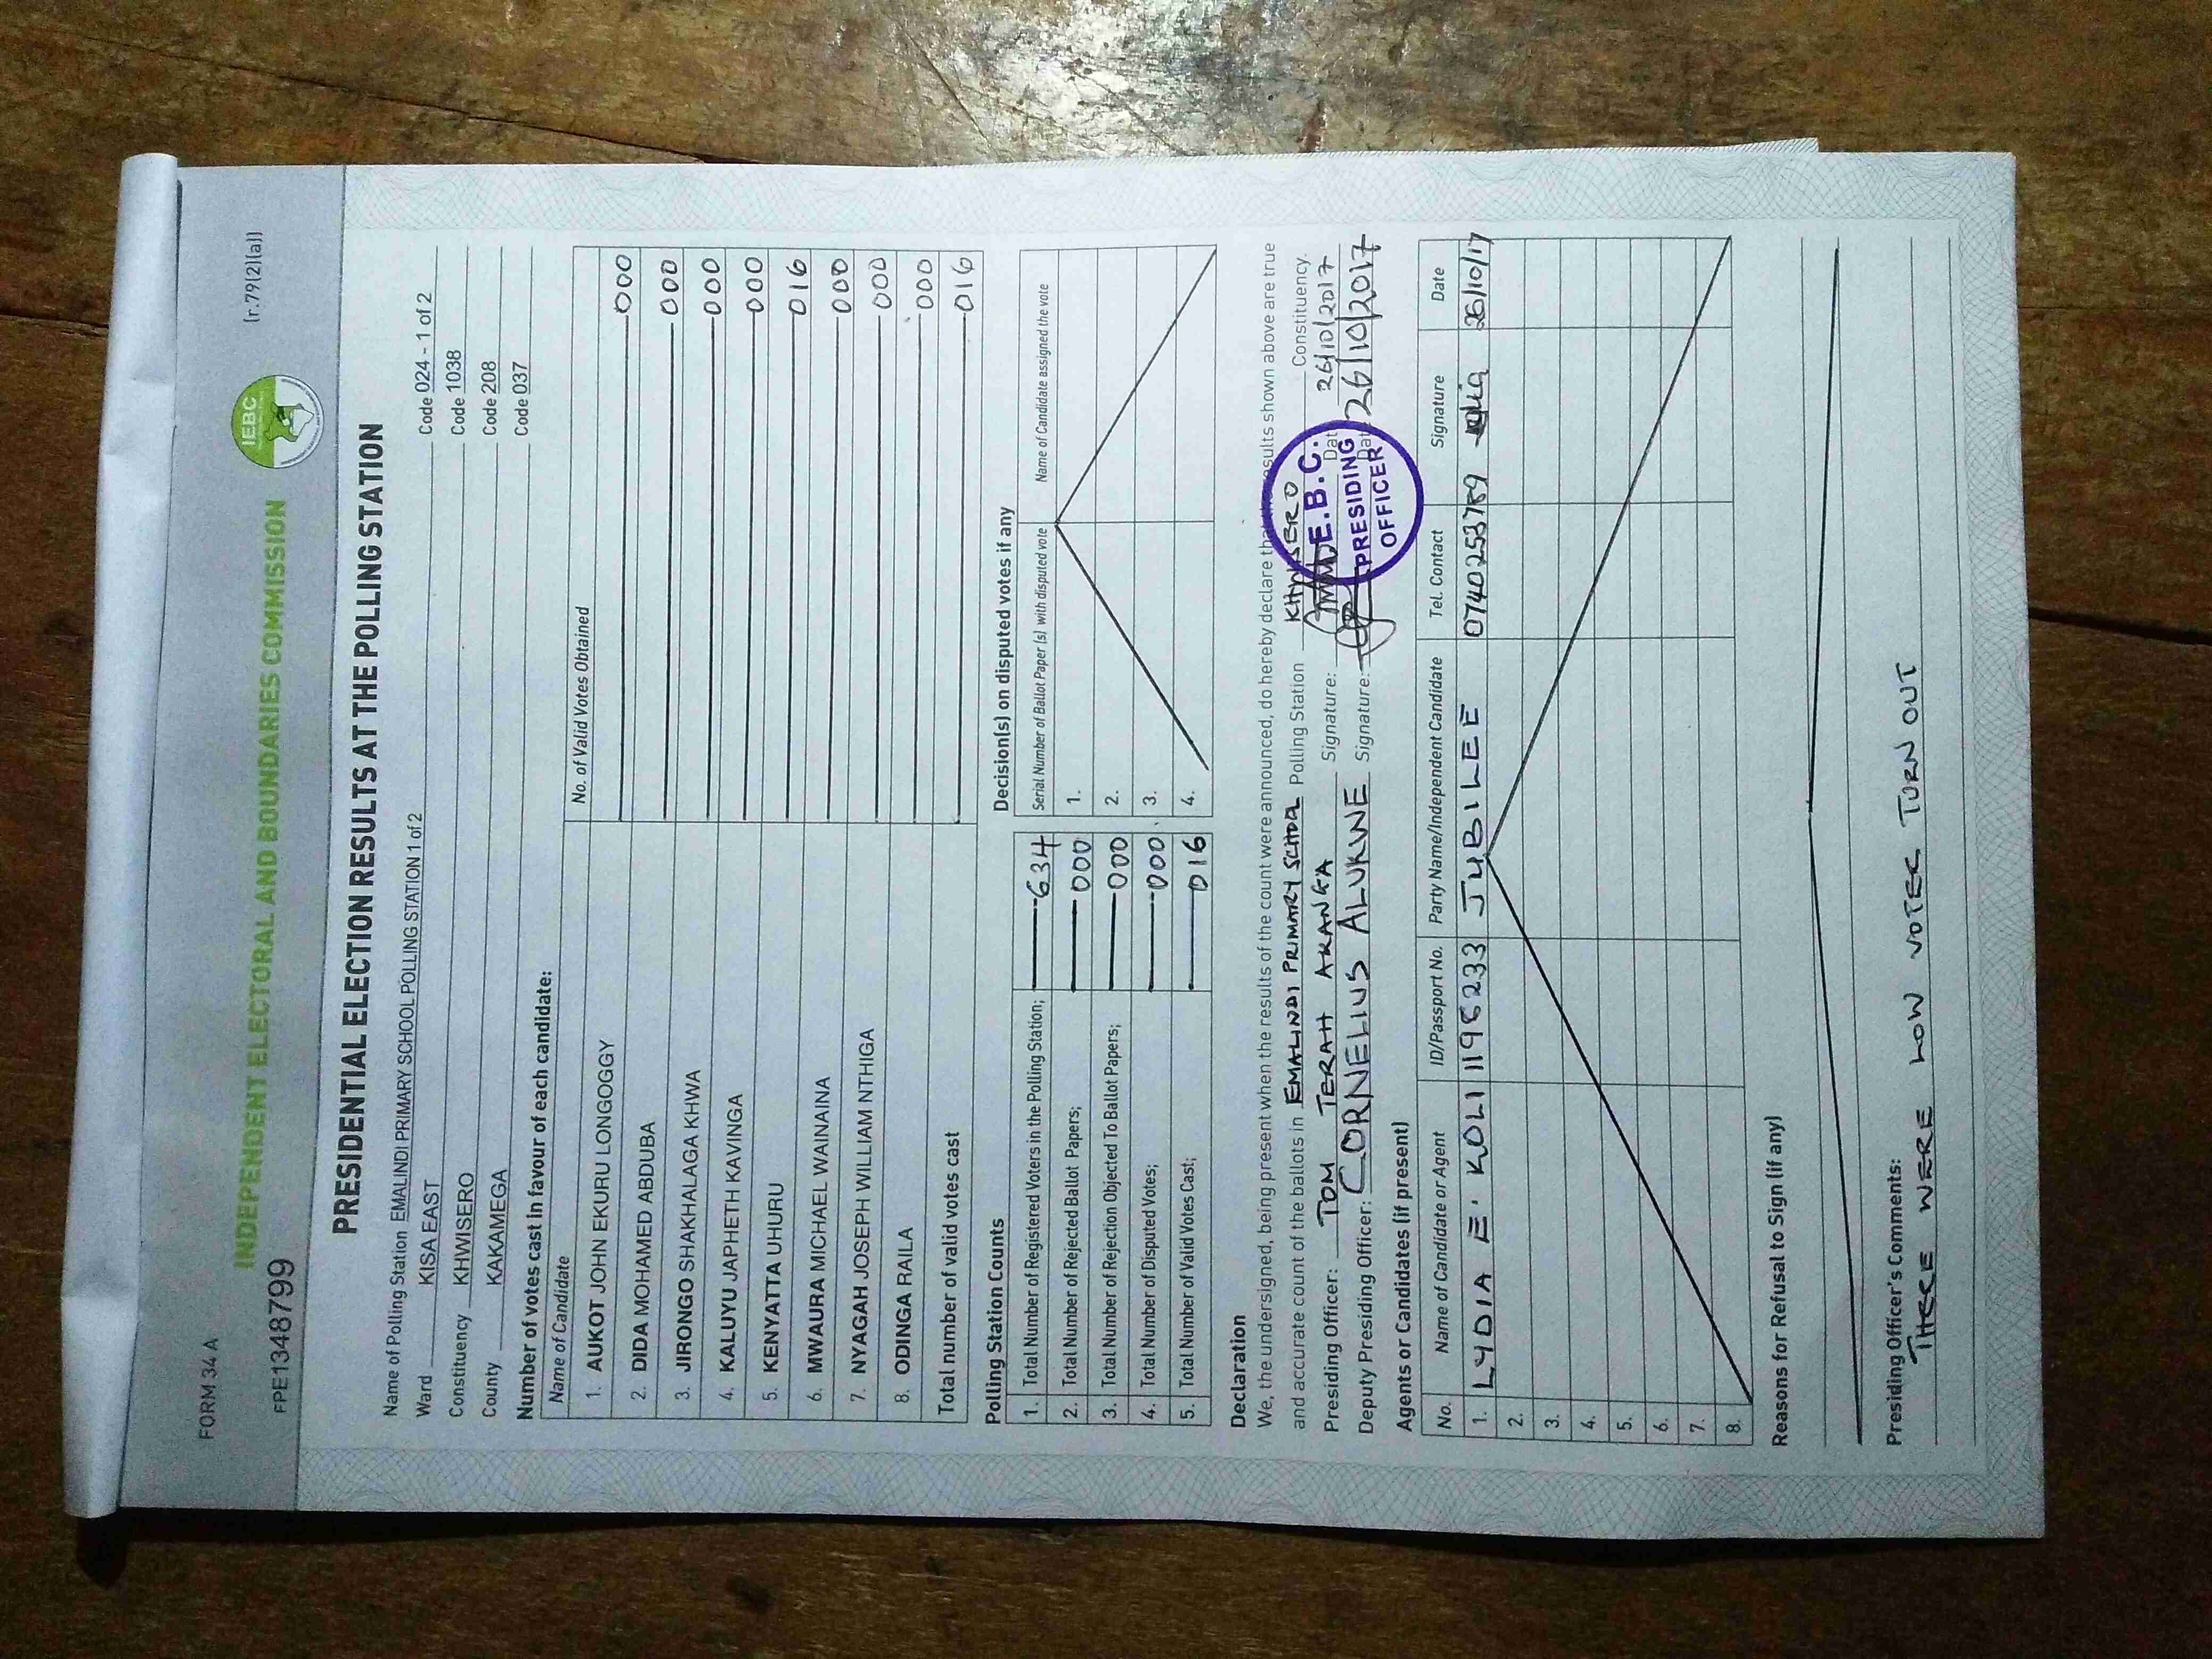 FORM 34 A
[r.79(2)(a)]
INDEPENDENT ELECTORAL AND BOUNDARIES COMMISSION
IEBC
FPE1348799
PRESIDENTIAL ELECTION RESULTS AT THE POLLING STATION
Name of Polling Station EMALINDI PRIMARY SCHOOL POLLING STATION 1 of 2 Code 024 - 1 of 2
Ward KISA EAST Code 1038
Constituency KHWISERO Code 208
County KAKAMEGA Code 037
Number of votes cast in favour of each candidate:
Name of Candidate No. of Valid Votes Obtained
1. AUKOT JOHN EKURU LONGOGGY 000
2. DIDA MOHAMED ABDUBA 000
3. JIRONGO SHAKHALAGA KHWA 000
4. KALUYU JAPHETH KAVINGA 000
5. KENYATTA UHURU 016
6. MWAURA MICHAEL WAINAINA 000
7. NYAGAH JOSEPH WILLIAM NTHIGA 000
8. ODINGA RAILA 000
Total number of valid votes cast 016
Polling Station Counts
1. Total Number of Registered Voters in the Polling Station; 634
2. Total Number of Rejected Ballot Papers; 000
3. Total Number of Rejection Objected To Ballot Papers; 000
4. Total Number of Disputed Votes; 000
5. Total Number of Valid Votes Cast; 016
Decision(s) on disputed votes if any
Serial Number of Ballot Paper (s) with disputed vote Name of Candidate assigned the vote
1.
2.
3.
4.
Declaration
We, the undersigned, being present when the results of the count were announced, do hereby declare that the results shown above are true
and accurate count of the ballots in EMALINDI PRIMARY SCHOOL Polling Station KHWISERO Constituency.
Presiding Officer: TOM TERAH AKANGA Signature: Date 26/10/2017
Deputy Presiding Officer: CORNELIUS ALUKWE Signature: Date 26/10/2017
I.E.B.C.
PRESIDING
OFFICER
Agents or Candidates (if present)
No. Name of Candidate or Agent ID/Passport No. Party Name/Independent Candidate Tel. Contact Signature Date
1. LYDIA E. KOLI 11198233 JUBILEE 0740253789 26/10/17
2.
3.
4.
5.
6.
7.
8.
Reasons for Refusal to Sign (if any)
Presiding Officer's Comments:
THERE WERE LOW VOTER TURN OUT